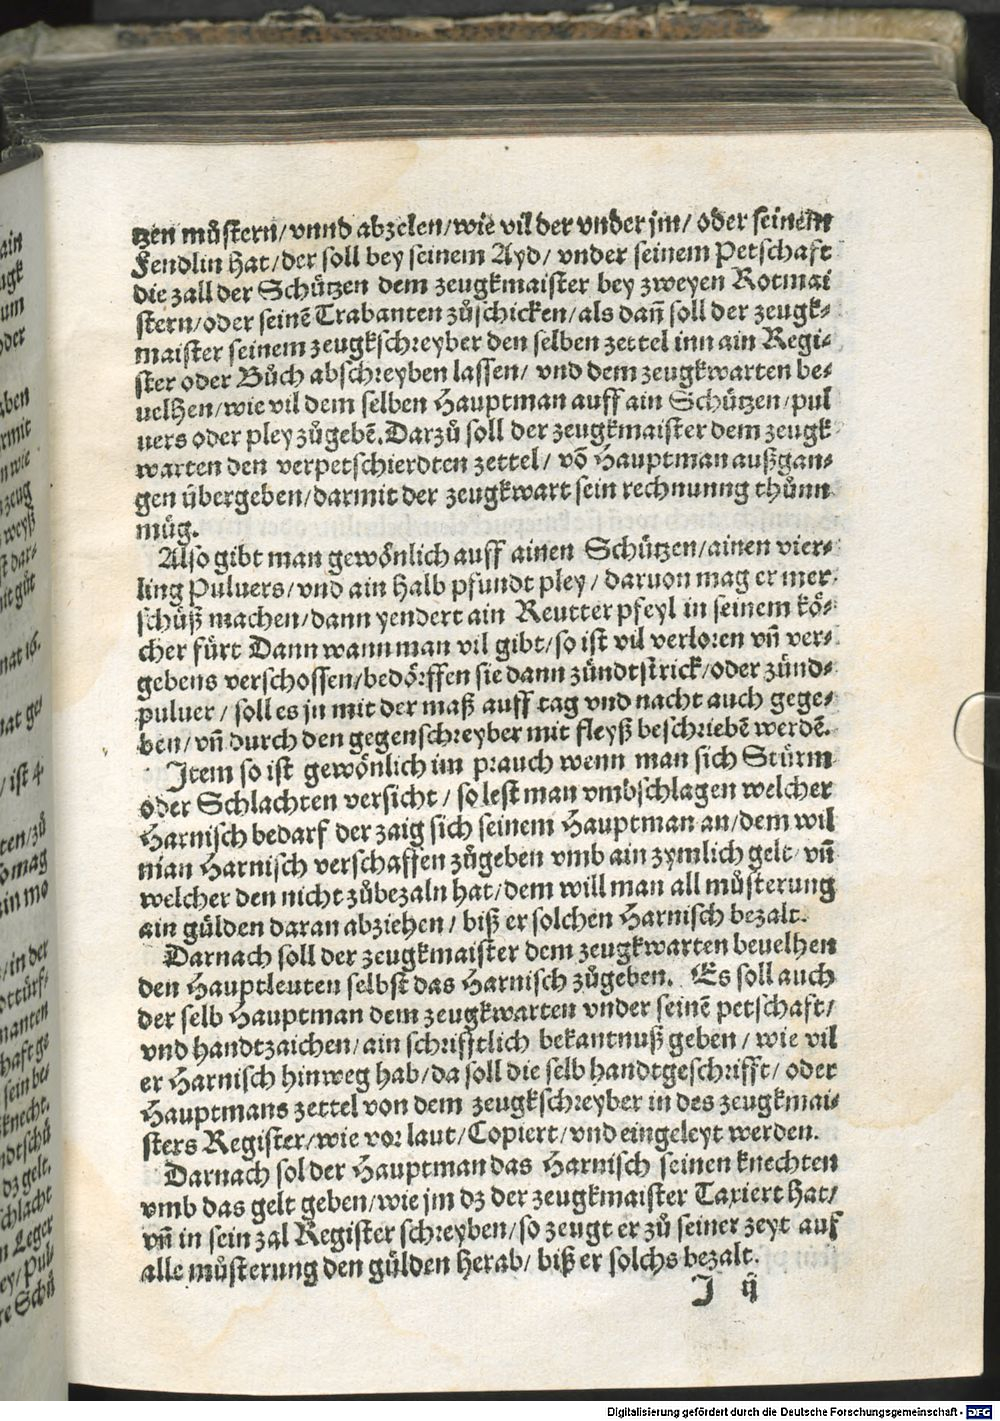 tzen můstern/vnnd abzelen/wie vil der vnder jm/ oder seinem
Fendlin hat/der soll bey seinem Ayd/ vnder seinem Petschaft
die zall der Schützen dem zeugkmaister bey zweyen Rotmai
stern/oder seinē Trabanten zůschicken/als dañ soll der zeugk⸗
maister seinem zeugkschreyber den selben zettel inn ain Regi⸗
ster oder Bůch abschreyben lassen/ vnd dem zeugkwarten be⸗
uelhen/wie vil dem selben Hauptman auff ain Schützen/pul
uers oder pley zůgebē. Darzů soll der zeugkmaister dem zeugk⸗
warten den verpetschierdten zettel/ vō Hauptman außgan⸗
gen übergeben/darmit der zeugkwart sein rechnunng thůnn
müg.
Also gibt man gewönlich auff ainen Schützen/ainen vier⸗
ling Puluers/vnd ain halb pfundt pley/ daruon mag er mer
schüß machen/dann yendert ain Reutter pfeyl in seinem kö⸗
cher fürt Dann wann man vil gibt/so ist vil verloren vñ ver⸗
gebens verschossen/bedörffen sie dann zündtstrick/oder zünd⸗
puluer/ soll es jn mit der maß auff tag vnd nacht auch gege⸗
ben/vñ durch den gegenschreyber mit fleyß beschriebē werdē.
Item so ist gewönlich im prauch wenn man sich Stürm
oder Schlachten versicht/ so lest man vmbschlagen welcher
Harnisch bedarf der zaig sich seinem Hauptman an/dem wil
man Harnisch verschaffen zůgeben vmb ain zymlich gelt/ vñ
welcher den nicht zůbezaln hat/dem will man all můsterung
ain gülden daran abziehen/ biß er solchen Harnisch bezalt.
Darnach soll der zeugkmaister dem zeugkwarten beuelhen
den Hauptleuten selbst das Harnisch zůgeben. Es soll auch
der selb Hauptman dem zeugkwarten vnder seinē petschaft/
vnd handtzaichen/ain schrifftlich bekantnuß geben/ wie vil
er Harnisch hinweg hab/da soll die selb handtgeschrifft/ oder
Hauptmans zettel von dem zeugkschreyber in des zeugkmai⸗
sters Register/wie vor laut/Copiert/vnd eingeleyt werden.
Darnach sol der Hauptman das Harnisch seinen knechten
vmb das gelt geben/wie jm dz der zeugkmaister Taxiert hat/
vñ in sein zal Register schreyben/so zeugt er zů seiner zeyt auf
alle můsterung den gülden herab/ biß er solchs bezalt.
J ij
Digitalisierung gefördert durch die Deutsche Forschungsgemeinschaft - DFG